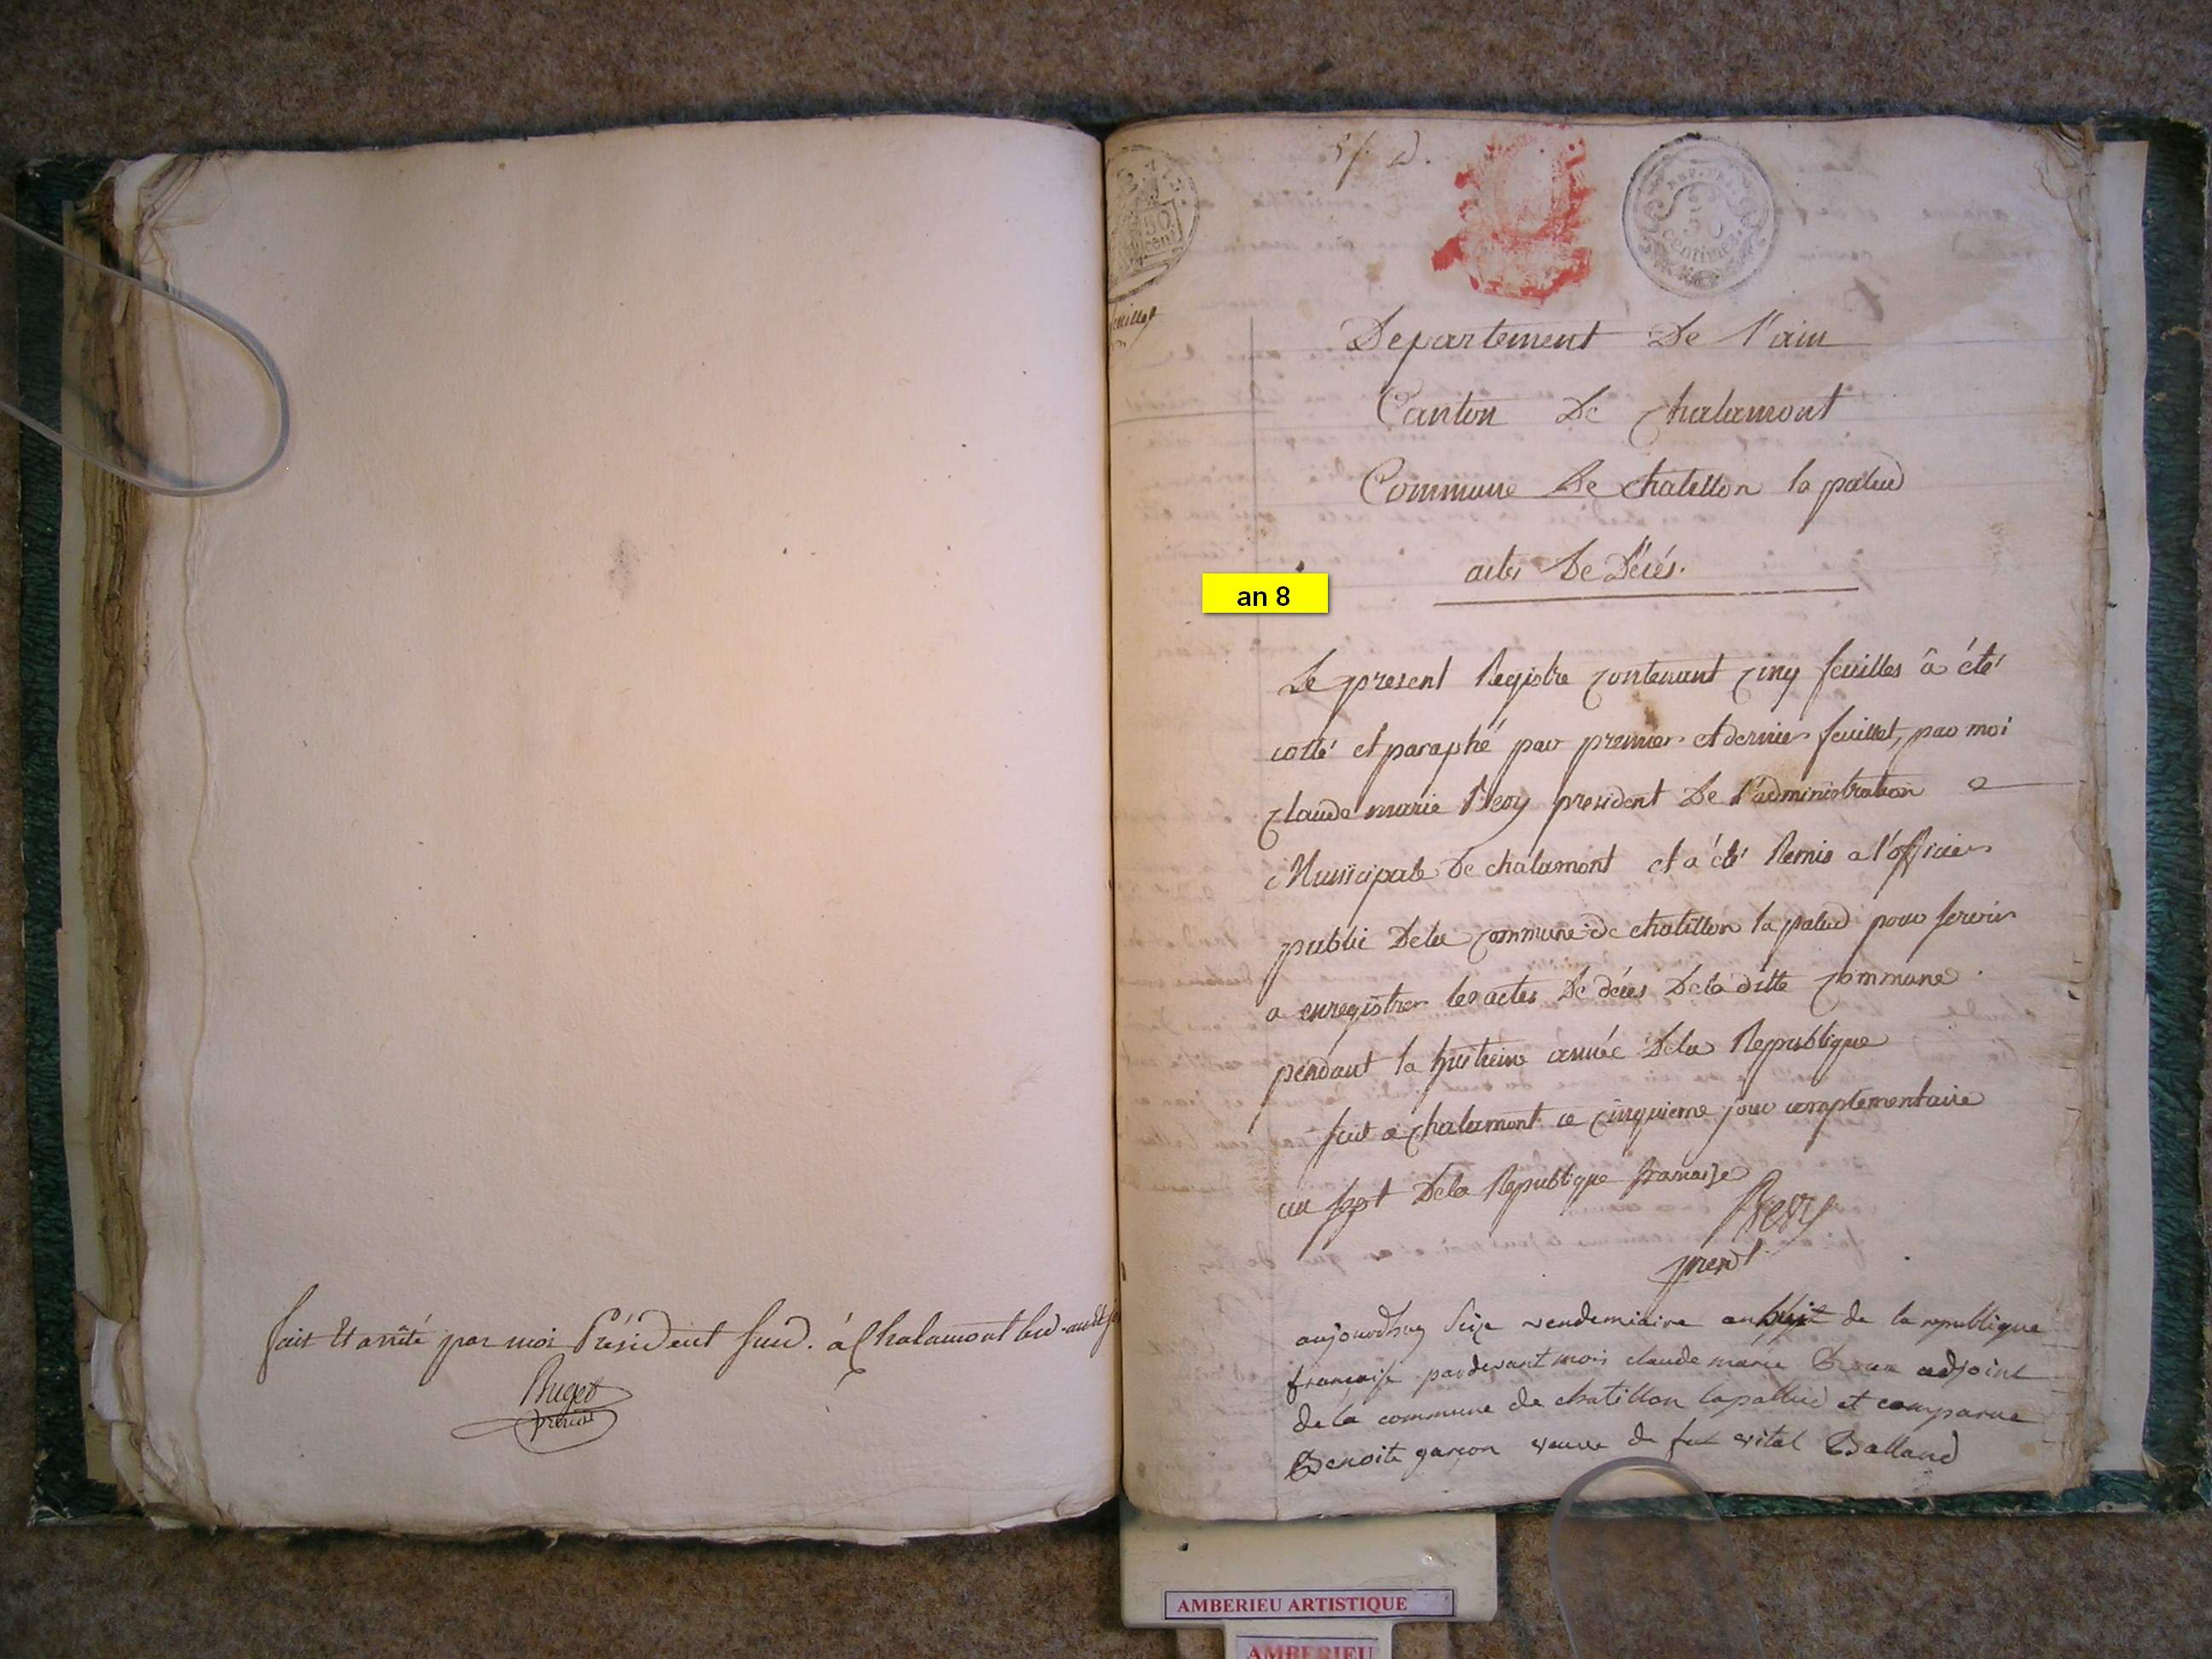 fait et arrêté par moi Président susd. à Chalamont led. an et jo
Buget
présidt
5 f. D.
REP. FRA.
50
centimes
50
cent
feuillet
Departement De l'ain
Canton De chalamont
Commune De chatillon la palud
actes De Décés.
an 8
Le present Registre contenant cinq feuilles â été
cotté et paraphé par premier et dernier feuillet, par moi
claude marie president De l'administration
Municipale De chalamont et a été Remis a l'officier
public Dela commune de chatillon la palud pour servir
a enregistrer les actes De décés Dela ditte commune
pendant la huitieme année Dela Republique
fait a chalamont ce cinquieme jour complementaire
an sept Dela Republique francaise
presdt
aujourdhuy seize vendemiaire an huit de la republique
francaise pardevant mois claude marie adjoint
de la commune de chatillon lapallud et comparue
Benoite garçon veuve de feu vital Balland
AMBERIEU ARTISTIQUE
AMBERIEU